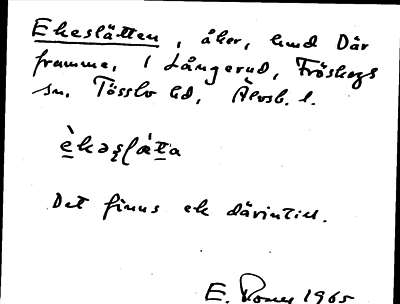 Ekeslätten, åker, hmd Där
framme, i Långerud, Fröskogs
sn. Tössbo hd, Älvsb. l.
èkəslät̲a
Det finns ek därintill.
E. 1965